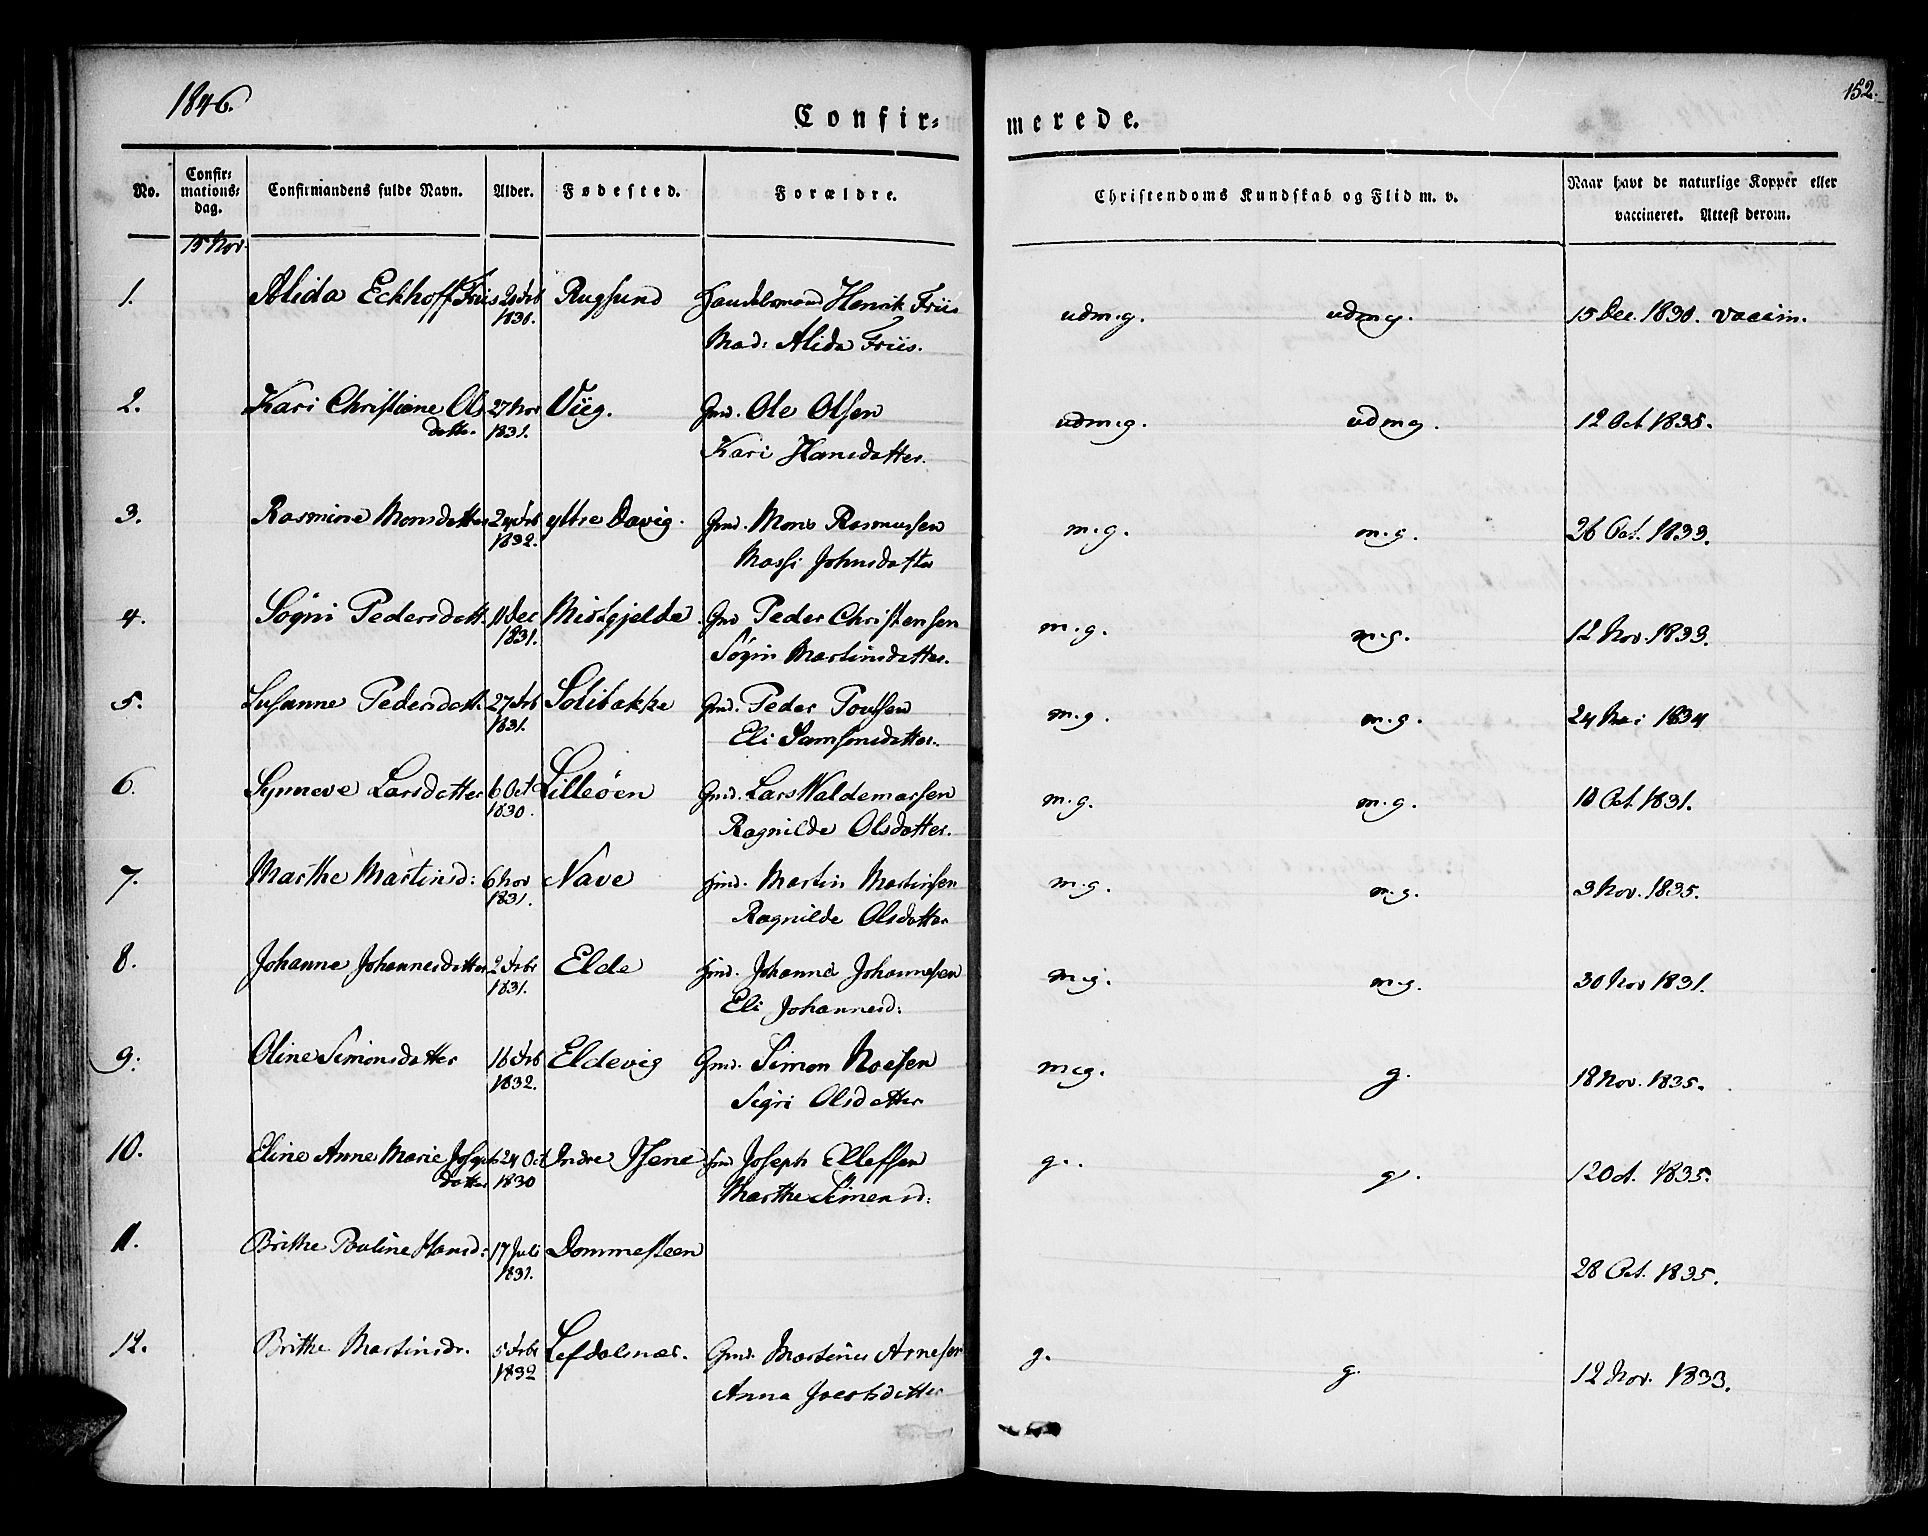 1846.
152.
Confir= merede.
No. Confir= mations= dag. Confirmandens fulde Navn. Alder. Fødested. Forældre. Christendoms Kundskab og Flid m. v. Naar havt de naturlige Kopper eller vaccineret. Attest derom.
15 Nov.
1. Alida Eckhoff Friis Rugsund Handelsmand Henrik Friis udm.g. udm.g. 15 Dec. 1830. vaccin.
Mad: Alida Friis.
2. Kari Christiane Ols 27 Nov Viig. Gmd. Ole Olsen udm.g. udmg. 12 Oct 1835.
datter. 1831. Kari Hansdatter.
3. Rasmine Monsdatter 24 Feb ytre Davig. Gmd. Mons Rasmussen m.g. m.g. 26 Oct. 1833.
1832. Massi Johnsdatter
4. Søgni Pedersdatt. 11 Dec Mistgjelde Gmd Peder Christensen m.g. m.g. 12 Nov. 1833.
1831. Søgni Martinsdatter.
5. Susanne Pedersdatt. 27 Feb Solibakke Gmd. Peder Poulsen m.g. m.g. 24 Mai 1834
1831. Eli Samsonsdatter.
6. Synneve Larsdatter 6 Oct Lilleøen Gmd. Lars Waldemarsen m.g. m.g. 10 Oct. 1831.
1830. Ragnilde Olsdatter.
7. Marthe Martinsd: 6 Nov Nave Hmd. Martin Martinsen m.g. m.g. 3 Nov. 1835.
1831. Ragnilde Olsdatter
8. Johanne Johannesdatter 2 Febr Elde Hmd. Johannes Johannesen m.g. m.g. 30 Nov 1831.
1831. Eli Johannesd:
9. Oline Simonsdatter 16 Feb Eldevig Gmd. Simon Noesen m.g. g. 18 Nov. 1835.
1832. Sigri Olsdatter
10. Eline Anne Marie Joseph 24 Oct Indre Isene Hmd Joseph Ellefsen g. g. 12 Oct. 1835.
datter 1830 Marthe Simensd:
11. Brithe Pauline Hansd: 17 Juli Dommesteen
1831. 28 Oct. 1835.
12. Brithe Martinsdr. 5 Febr Lefdalsnæs. Gmd. Martinus Arnesen g. g. 12 Nov. 1833.
1832 Anna Ivertsdatter